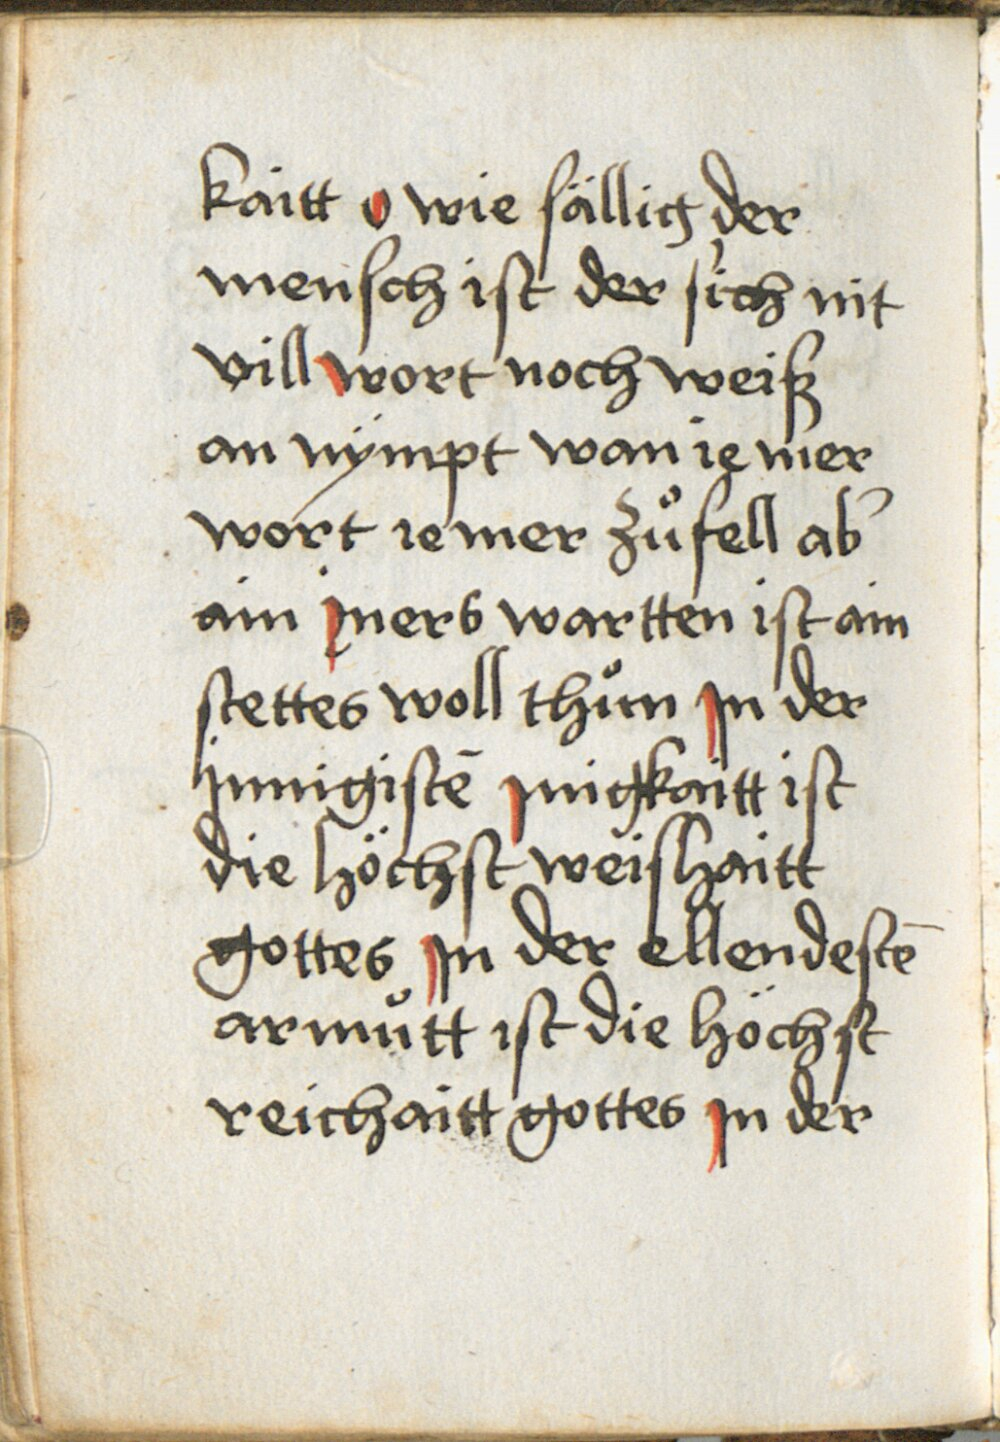 kaitt o wie sällig der
mensch ist der sich nit
vill wort noch weiß
an nympt wan ie mer
wort ie mer zůfell ab
ain iners wartten ist ain
stettes woll thůn jn der
jnnigistē jnigkaitt ist
die höchst weishaitt
gottes jn der ellendestē
armůtt ist die höchst
reichaitt gottes jn der